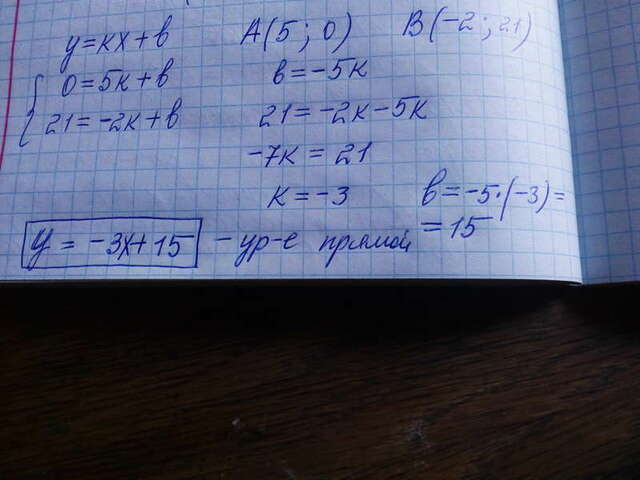 y=kx+b A(5;0) B(-2;21)
0=5k+b b=-5k
21=-2k+b 21=-2k-5k
-7k=21
k=-3 b=-5·(-3)=
=15
y=-3x+15 - ур-е прямой